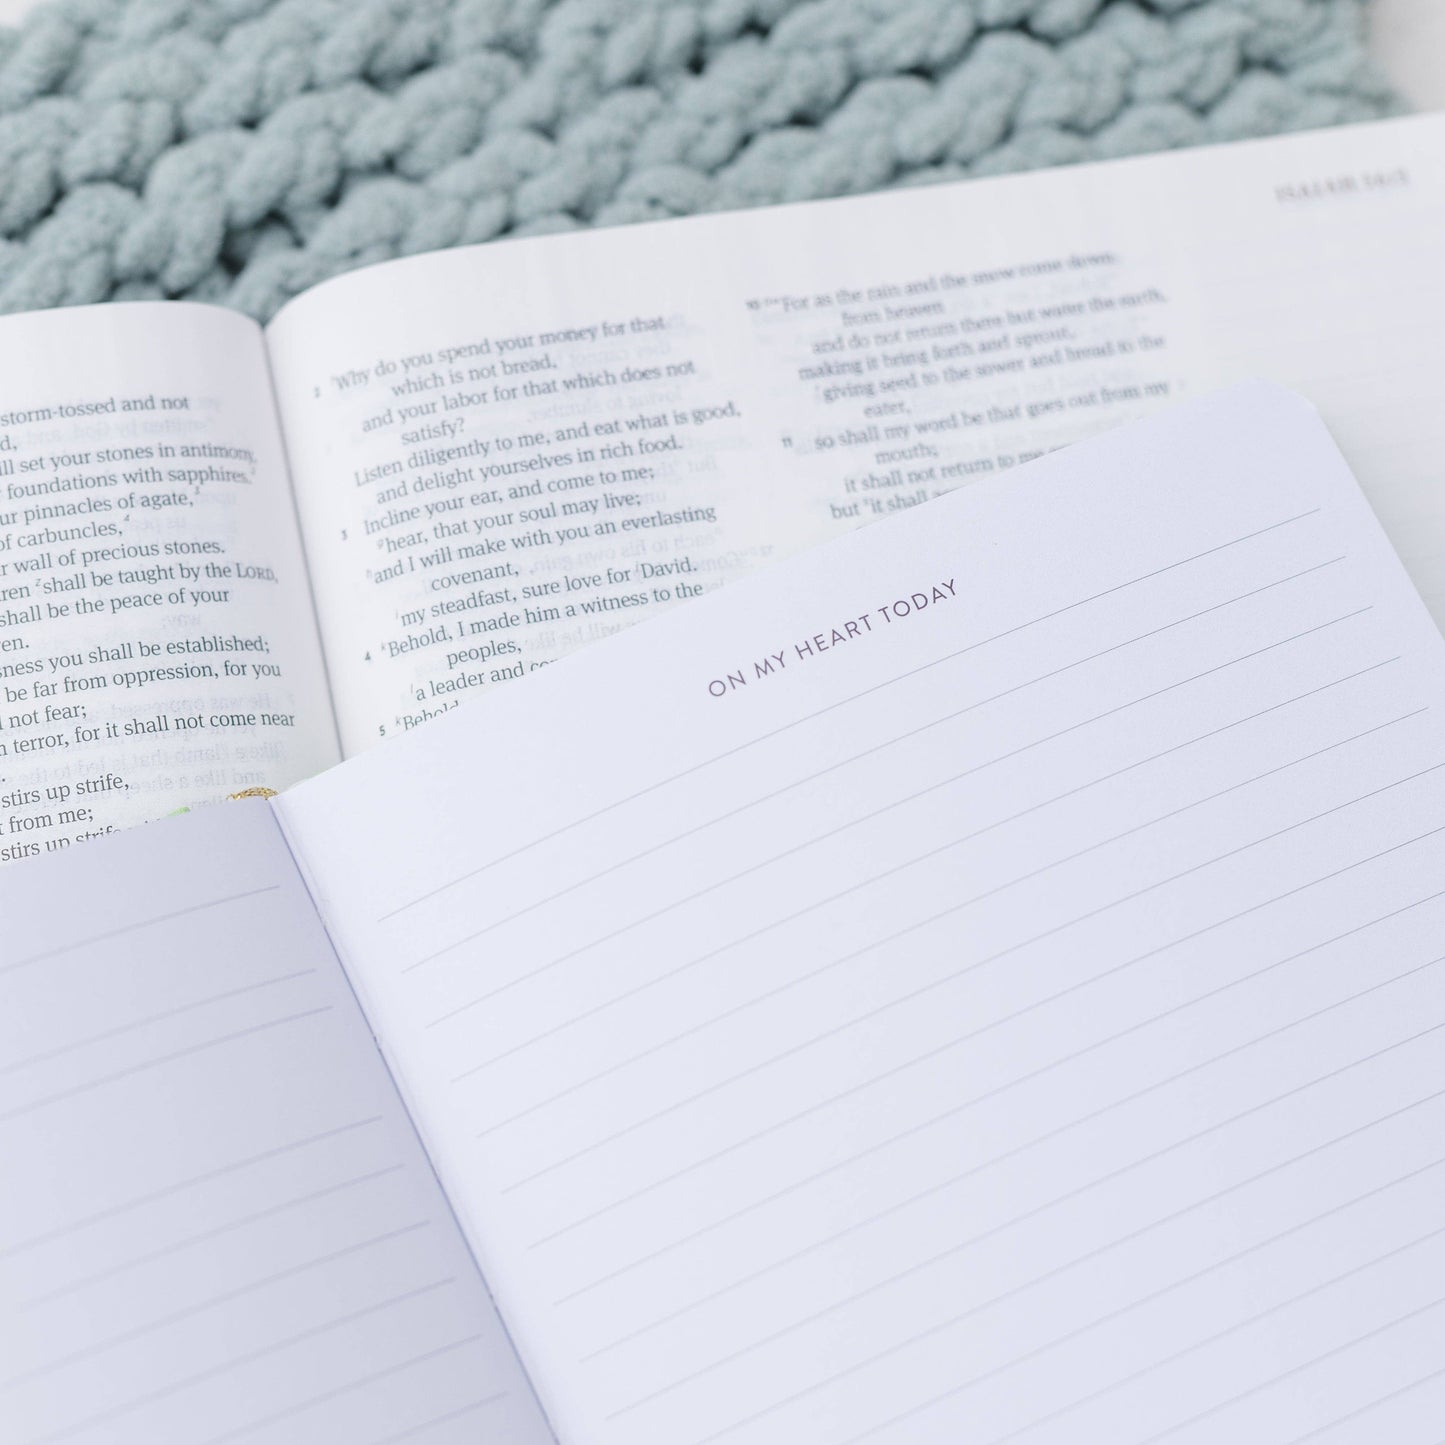 storm-tossed and not
d,
ll set your stones in antimony,
foundations with sapphires,²
ur pinnacles of agate,³
of carbuncles,⁴
r wall of precious stones.
ren ᶻshall be taught by the LORD,
shall be the peace of your
en.
sness you shall be established;
be far from oppression, for you
l not fear;
n terror, for it shall not come near
stirs up strife,
from me;
stirs up strife
2 Why do you spend your money for that
which is not bread,
and your labor for that which does not
satisfy?
Listen diligently to me, and eat what is good,
and delight yourselves in rich food.
3 Incline your ear, and come to me;
ᵍhear, that your soul may live;
ʰand I will make with you an everlasting
covenant,
ⁱmy steadfast, sure love for ʲDavid.
4 ᵏBehold, I made him a witness to the
peoples,
ˡa leader and co
5 ᵏBehold
10 "For as the rain and the snow come down
from heaven
and do not return there but water the earth,
making it bring forth and sprout,
giving seed to the sower and bread to the
eater,
11 so shall my word be that goes out from my
mouth;
it shall not return to me
but it shall
ISAIAH
ON MY HEART TODAY